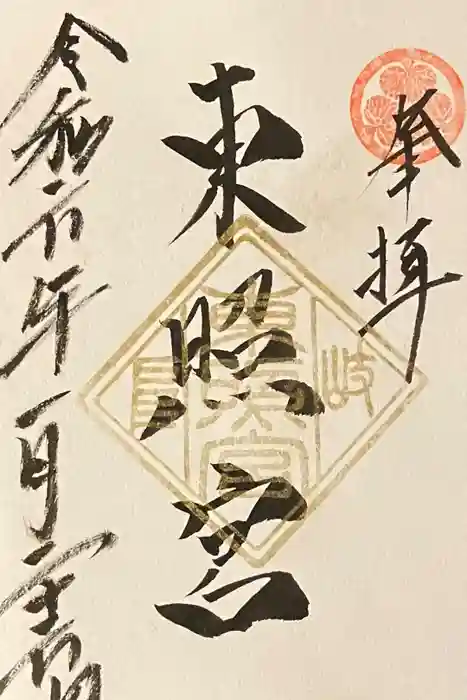 奉拝
東照宮
岐
東照宮
令和六年一月二十